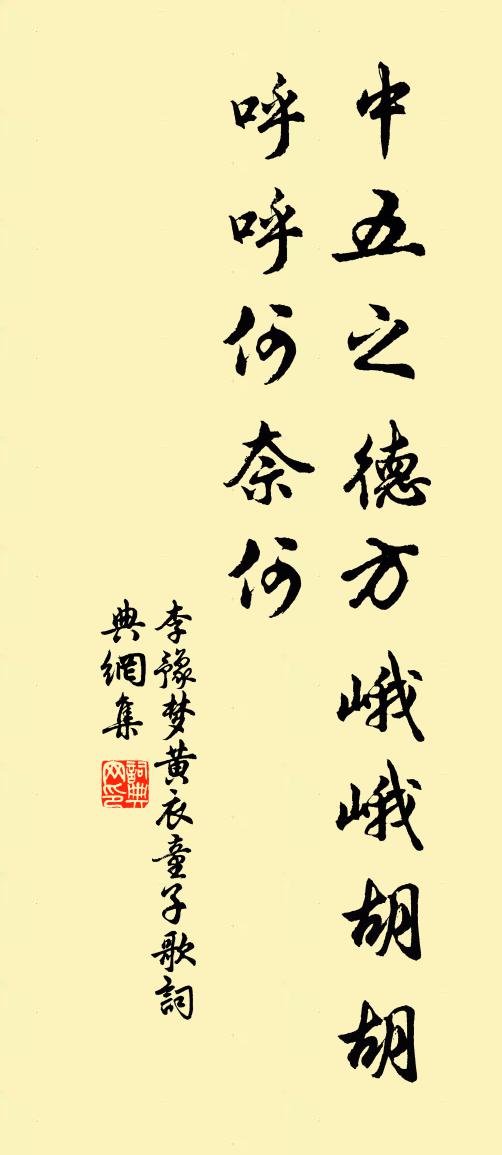 中五之德方峨峨胡胡
呼呼何奈何
李豫梦黄衣童子歌词
典網集
詞典
网印